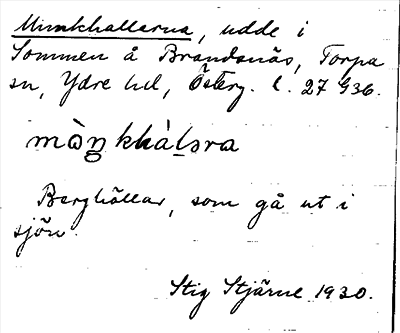 Munkhallarna, udde i
Sommen å Brandsnäs, Torpa
sn, Ydre hd, Österg. l. 27 G36.
Berghällar, som gå ut i
sjön.
Stig Stjärne 1930.